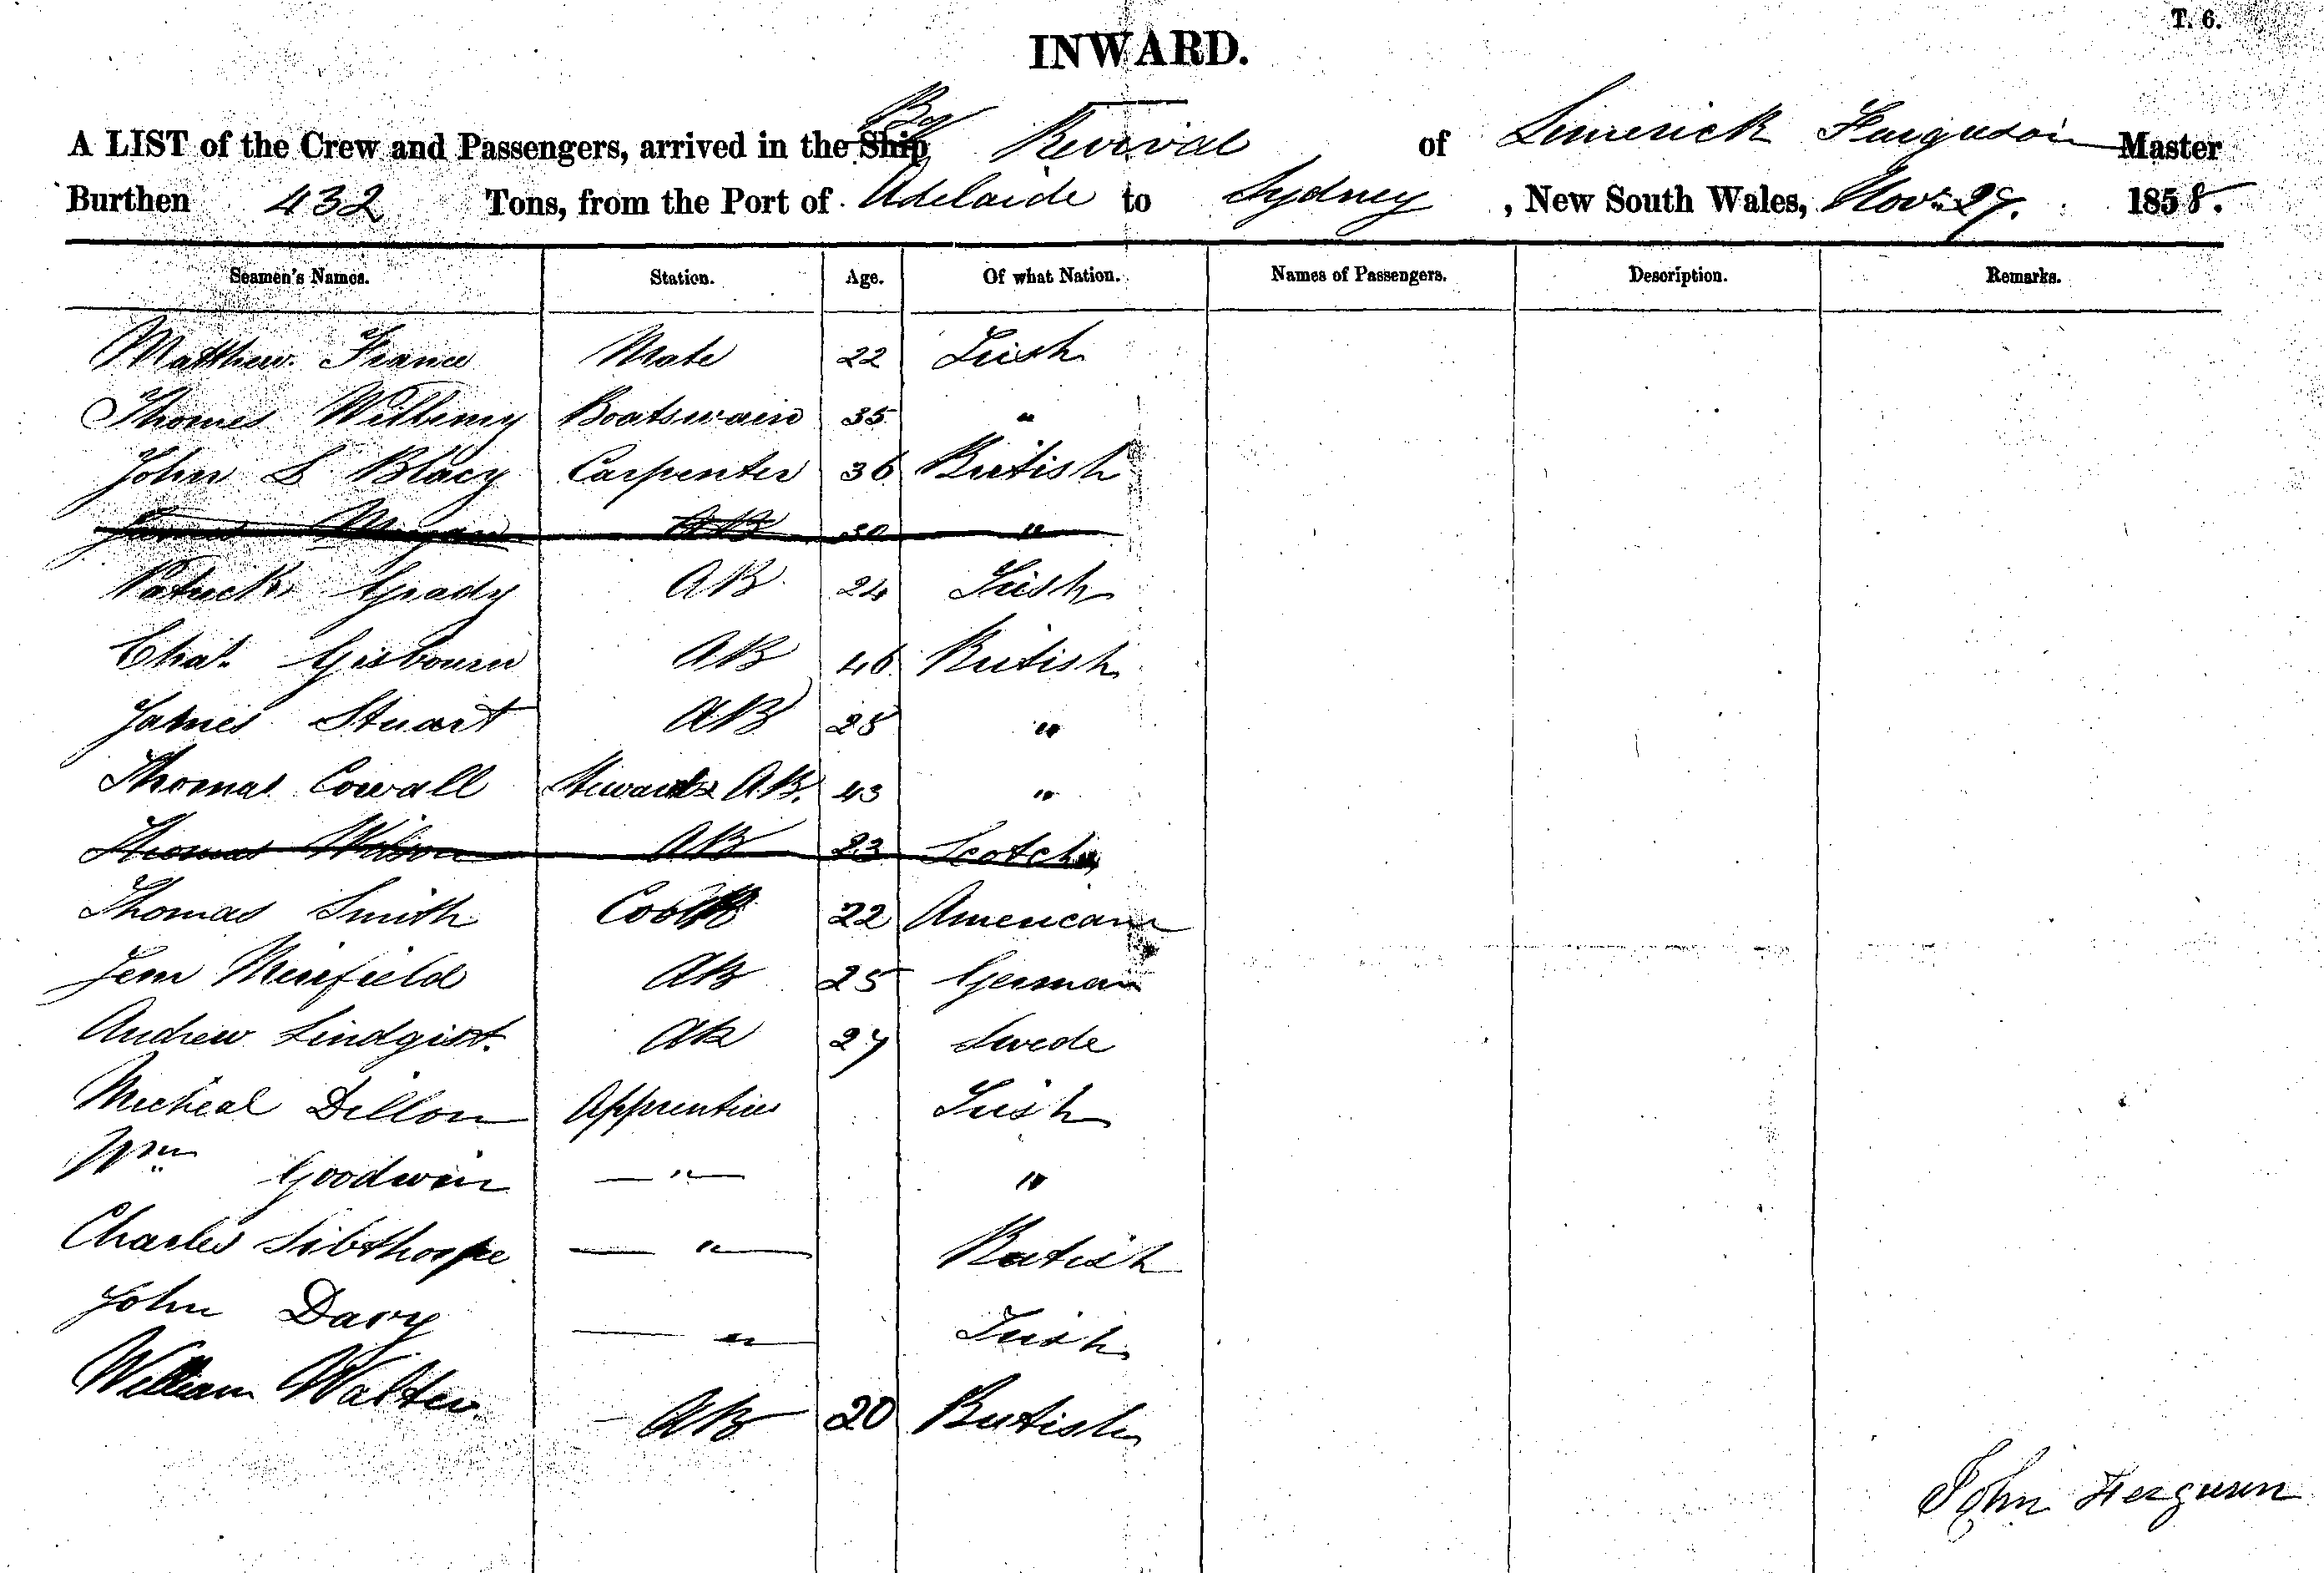 T. 6.
INWARD.
A LIST of the Crew and Passengers, arrived in the Ship Bq Revival of Limerick Ferguson Master
Burthen 432 Tons, from the Port of Adelaide to Sydney, New South Wales, Novr. 29. 1858.
Seamen's Names. Station. Age. Of what Nation. Names of Passengers. Description. Remarks.
Matthew France Mate 22 Irish
Thomas Boatswain 35 "
John S Blacy Carpenter 36 British
James Morgan AB 30 "
Patrick Grady AB 24 Irish
Chas. Gisbourn AB 46 British
James Stuart AB 25 "
Thomas Cowall Steward & AB. 43 "
Thomas Wilson AB 23 Scotch
Thomas Smith Cook 22 American
Jem AB 25 German
Andrew Lindgist. AB 27 Swede
Micheal Dillon Apprentice Irish
Wm Goodwin — " — "
Charles Sibthorpe — " — British
John Davy — " — Irish
William Walter AB 20 British
John Ferguson